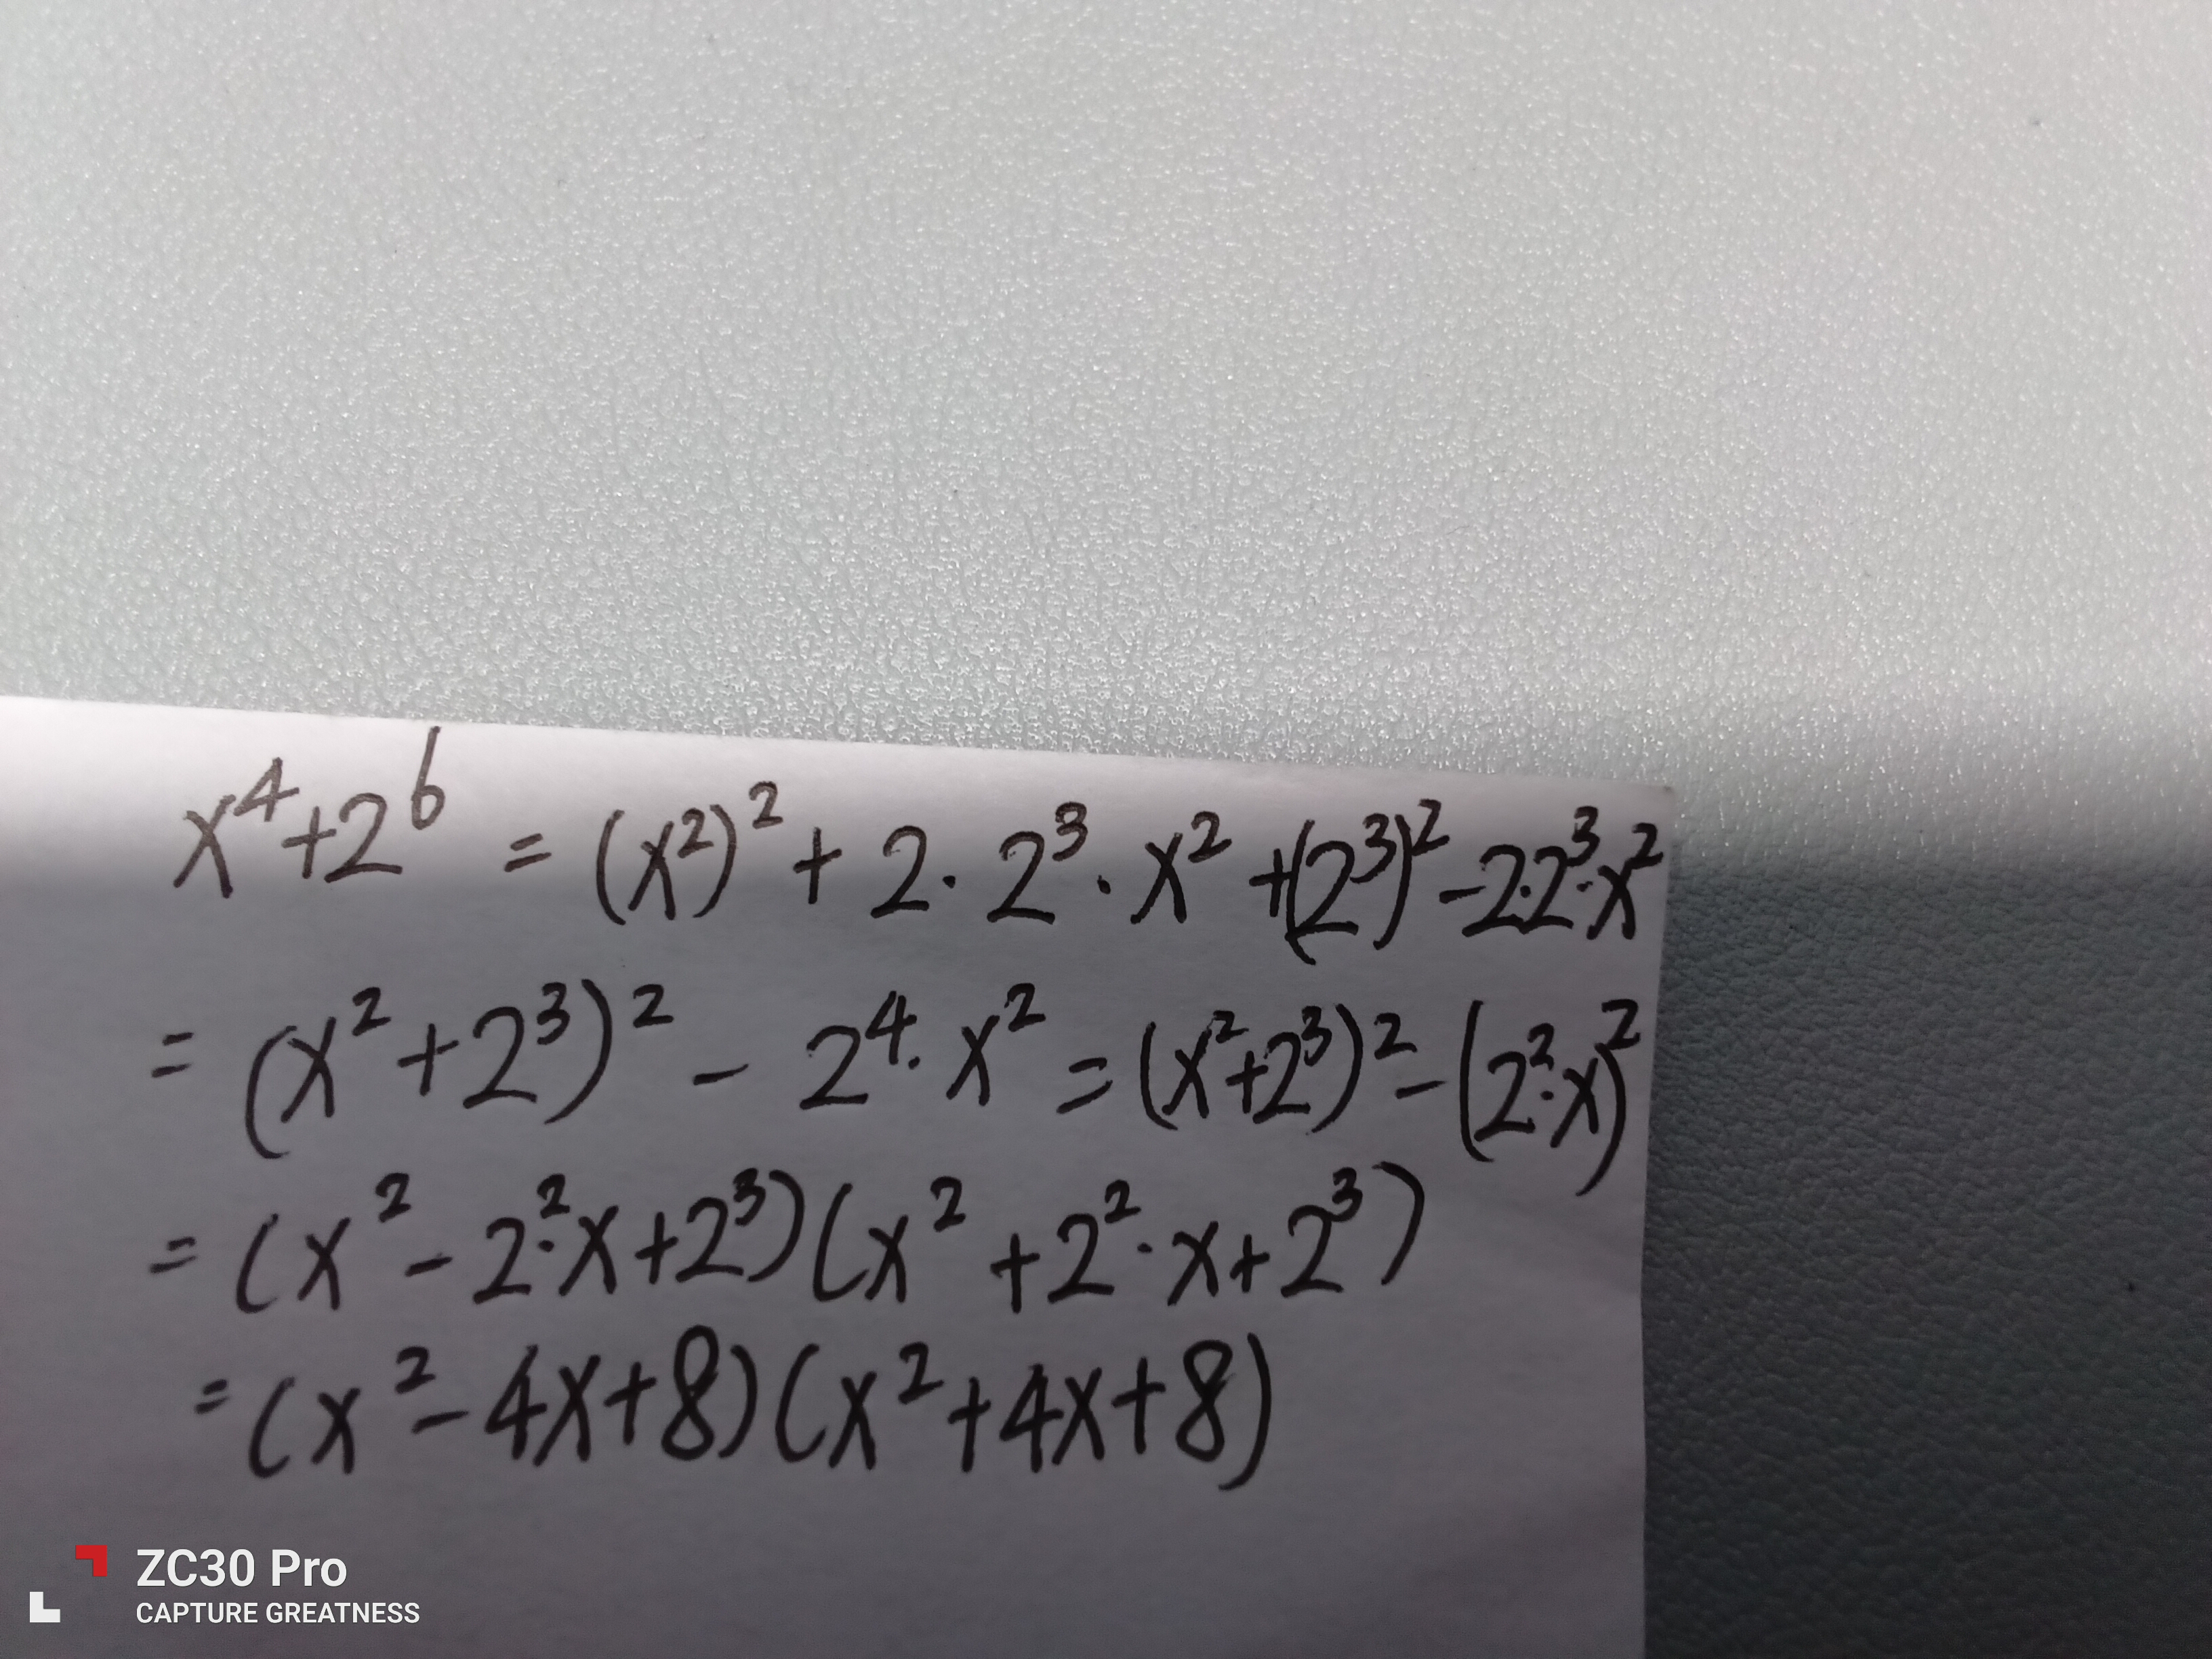 x⁴+2⁶ = (x²)² + 2 · 2³ · x² +(2³)² -2·2³·x²
= (x² +2³)² - 2⁴ · x² = (x²+2³)² - (2²·x)²
= (x² - 2²·x+2³)(x² +2² · x+2³)
= (x² - 4x+8)(x²+4x+8)
ZC30 Pro
CAPTURE GREATNESS